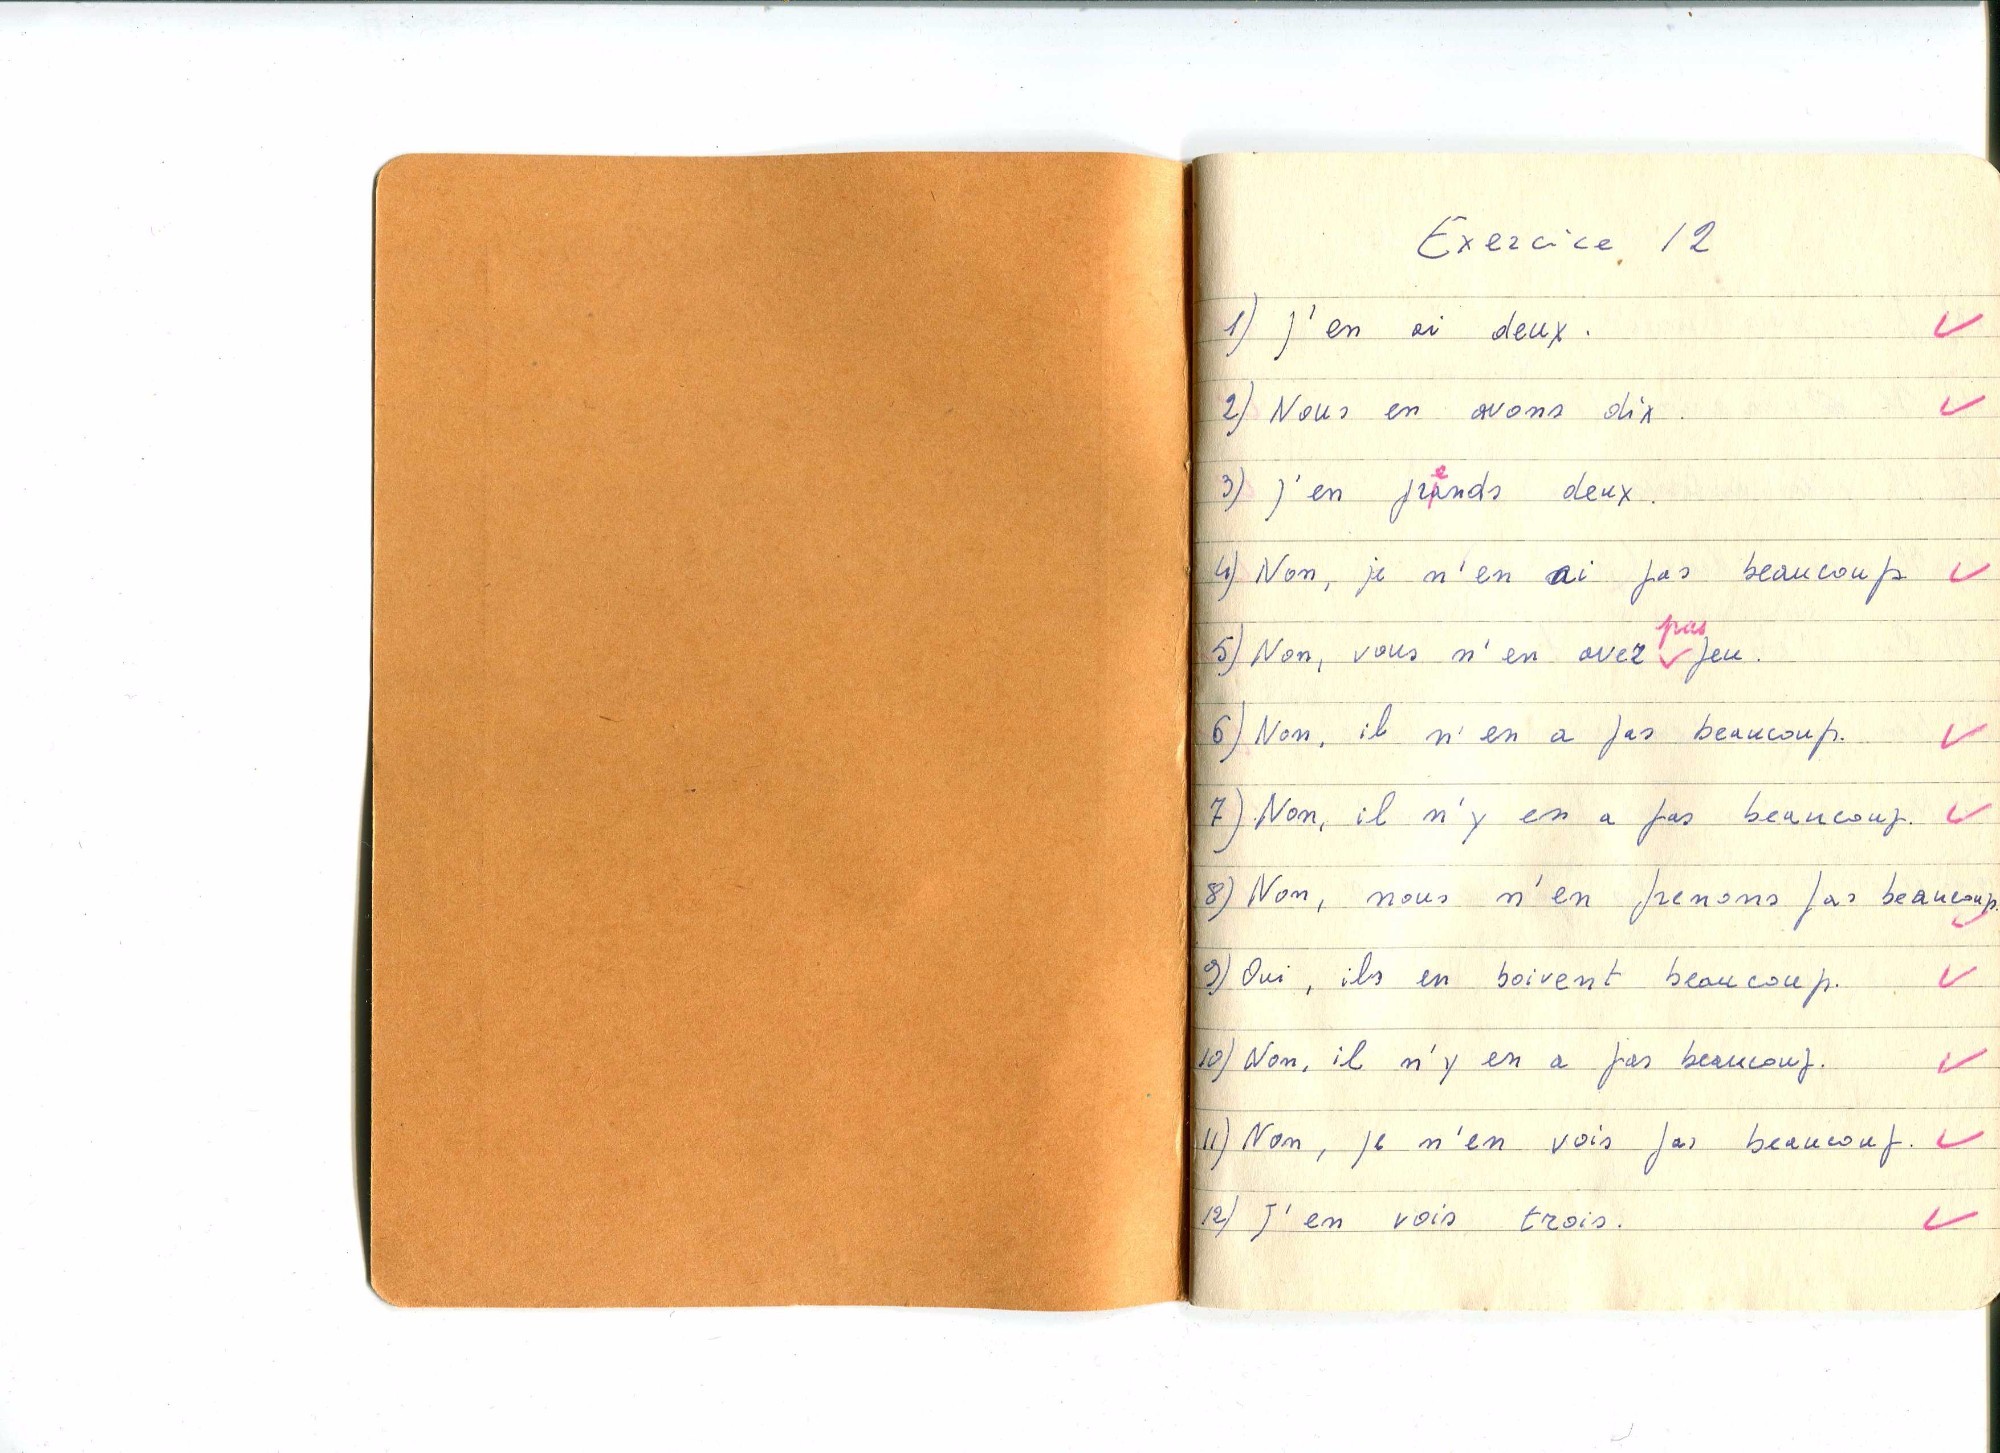 Exercice 12
1) J'en ai deux.
2) Nous en avons dix.
e
3) J'en prands deux.
4) Non, je n'en ai pas beaucoup
pas
5) Non, vous n'en avez peu.
6) Non, il n'en a pas beaucoup.
7) Non, il n'y en a pas beaucoup.
8) Non, nous n'en prenons pas beaucoup.
9) Oui, ils en boivent beaucoup.
10) Non, il n'y en a pas beaucoup.
11) Non, je n'en vois pas beaucoup.
12) J'en vois trois.